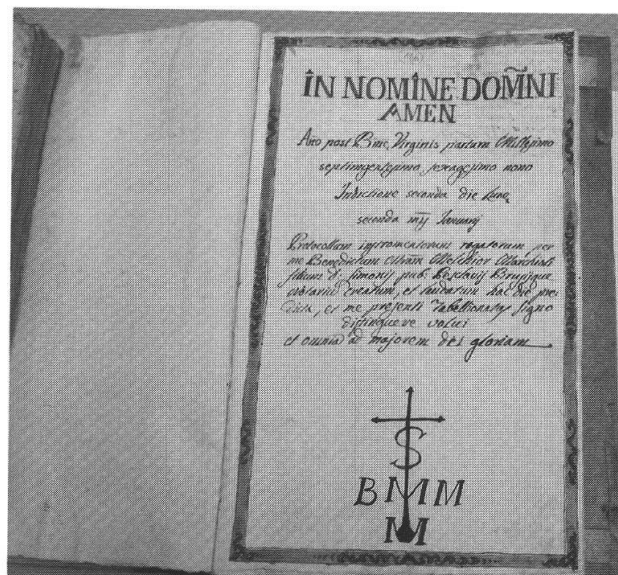 IN NOMINE DOM̃NI
AMEN
Ano post Bme, Virginis partum Millesimo
septingentesimo, sexagesimo nono
Indictione seconda die Lune,
seconda mĩj Januarij
Protocollum instromentorum rogatorum per
me Benedictum Melchior
filium d. simonis pub.
notariũ creatum, et laudatum hac die pre-
dicta, et me presenti Tabellionatus signo
distinguere volui
et omnia ad majorem dei gloriam
S
BMM
M